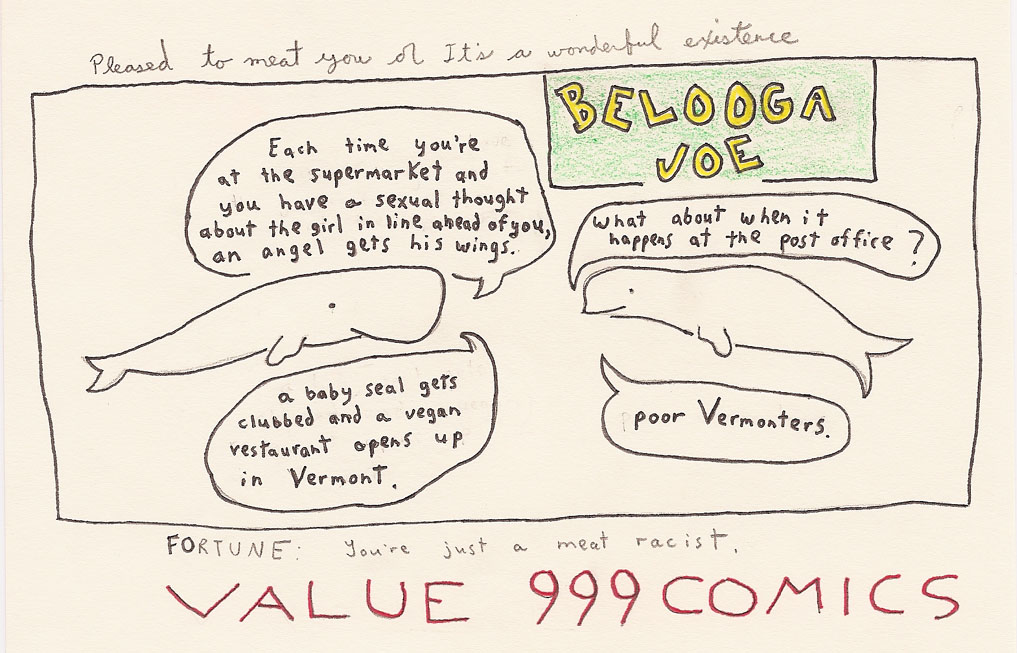 Pleased to meat you or It's a wonderful existence
BELOOGA
JOE
Each time you're
at the supermarket and
you have a sexual thought
about the girl in line ahead of you,
an angel gets his wings.
What about when it
happens at the post office?
a baby seal gets
clubbed and a vegan
restaurant opens up
in Vermont.
poor Vermonters.
FORTUNE: You're just a meat racist.
VALUE 999 COMICS